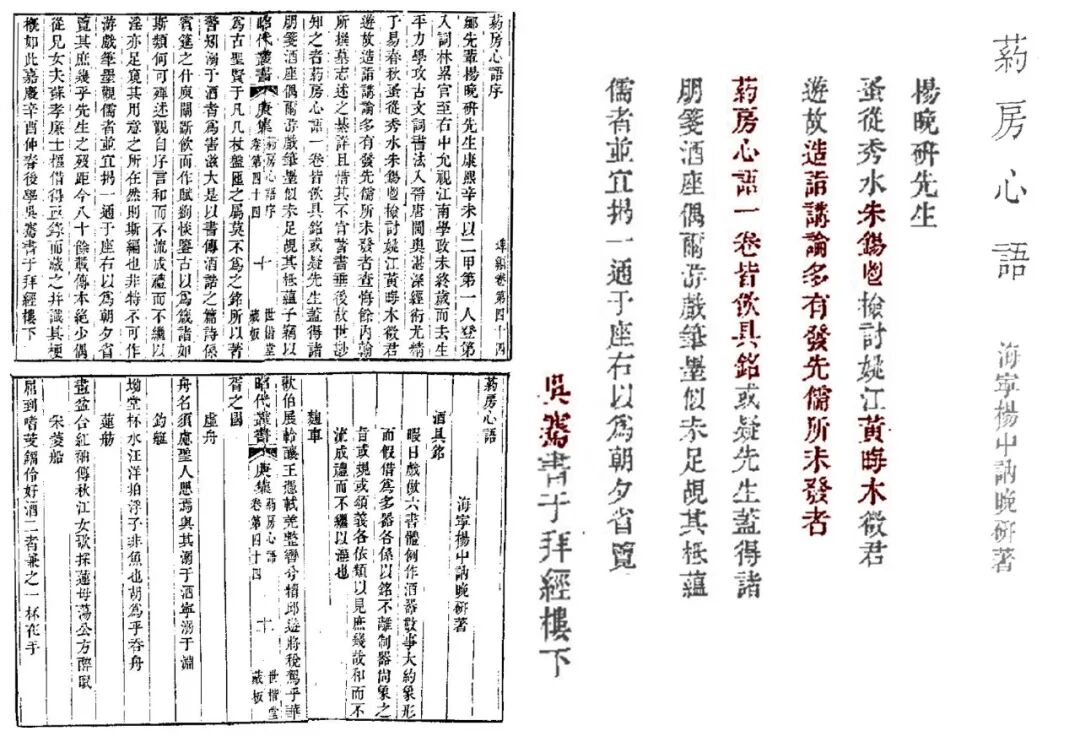 葯房心語
海寧楊中訥晚研著
楊晚研先生
蚤從秀水朱錫鬯檢討姚江黃晦木徵君
遊故造詣講論多有發先儒所未發者
葯房心語一卷皆飲具銘或疑先生蓋得諸
朋箋酒座偶爾游戲筆墨似未足覘其柢蘊
儒者並宜揭一通于座右以為朝夕省覽
吳騫書于拜經樓下
葯房心語序
埤編卷第四十四
鄉先輩楊晚研先生康熙辛未以二甲第一人登第
入詞林累官至右中允視江南學政未終歲而去生
平力學攻古文詞書法入晉唐閫奧湛深經術尤精
于易春秋蚤從秀水朱錫鬯檢討姚江黃晦木徵君
遊故造詣講論多有發先儒所未發者查悔餘內翰
所撰墓志述之綦詳且惜其不官著書垂後故世尠
知之者葯房心語一卷皆飲具銘或疑先生蓋得諸
朋箋酒座偶爾游戲筆墨似未足覘其柢蘊予竊以
昭代叢書 庚集 葯房心語序 卷第四十四 十 世楷堂藏板
為古聖賢于凡几杖盤匜之屬莫不為之銘所以著
警矧溺于酒者為害滋大是以書傳酒誥之篇詩係
賓筵之什庾闡斷飲而作賦劉惔鑒古以為箴諸如
斯類何可殫述觀自序言和而不流成禮而不繼以
淫亦足窺其用意之所在然則斯編也非特不可作
游戲筆墨觀儒者並宜揭一通于座右以為朝夕省
覽其庶幾乎先生之歿距今八十餘載傳本絕少偶
從兄女夫蘇孝廉士樞借得亟錄而藏之并識其梗
概如此嘉慶辛酉仲春後學吳騫書于拜經樓下
葯房心語
海寧楊中訥晚研著
酒具銘
暇日戲倣六書體例作酒器數事大約象形
而假借為多器各係以銘不離制器尚象之
旨或規或頌義各依類以見庶幾哉和而不
流成禮而不繼以淫也
麴車
歡伯展軨讓王憑軾並整轡兮糟邱遊將稅駕乎華
昭代叢書 庚集 葯房心語 卷第四十四 十 世楷堂藏板
胥之國
虛舟
舟名須慮聖人思焉與其溺于酒寧溺于淵
釣艇
坳堂杯水汪洋拍浮子非魚也胡為乎吞舟
蓮舫
盡盆合紅袖傳秋江女歌採蓮毋蕩公方醉眠
采菱船
屈到嗜芰鍤伶好酒二者兼之一杯在手